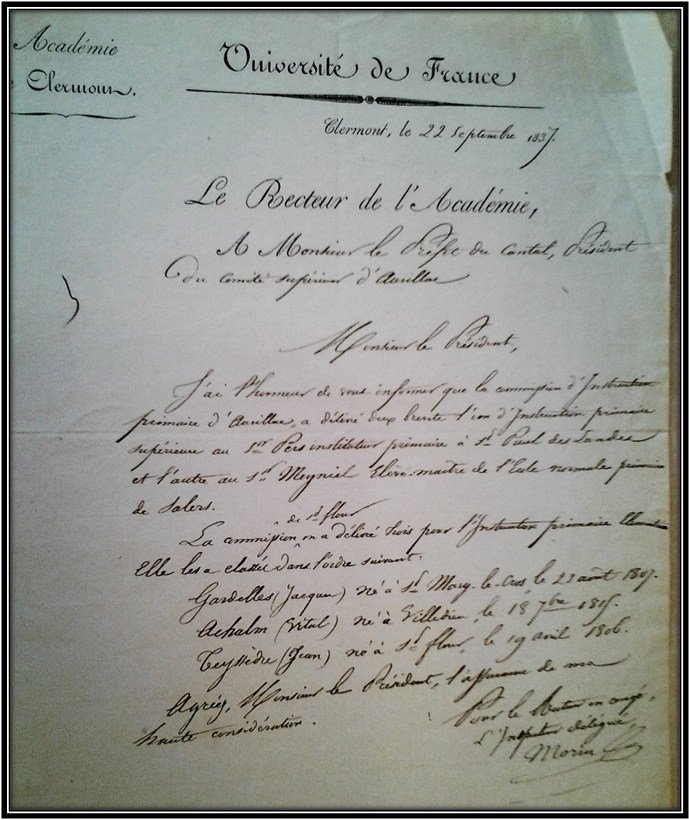 Académie
Clermont.
Université de France
Clermont, le 22 Septembre 1837.
Le Recteur de l'Académie,
A Monsieur le Préfet du Cantal, Président
du comité supérieur d'Aurillac
Monsieur le Président,
J'ai l'honneur de vous informer que la commission d'Instruction
primaire d'Aurillac, a délivré deux brevets l'un d'Instruction primaire
supérieure au Sr Pers instituteur primaire à St Paul des Landes
et l'autre au Sr Meyniel Elève-maître de l'Ecole normale primaire
de Salers.
de St flour
La commission en a délivré trois pour l'Instruction primaire Elément
Elle les a classés dans l'ordre suivant.
Gardelles (Jacques) né à St Mary-le-Cros le 22 août 1807.
Achalm (Vital) né à Villedieu, le 18 7bre 1815.
Teyssèdre (Jean) né à St flour, le 19 avril 1806.
Agréez, Monsieur le Président, l'assurance de ma
haute considération.
Pour le Recteur en congé,
L'Inspecteur délégué,
Morin